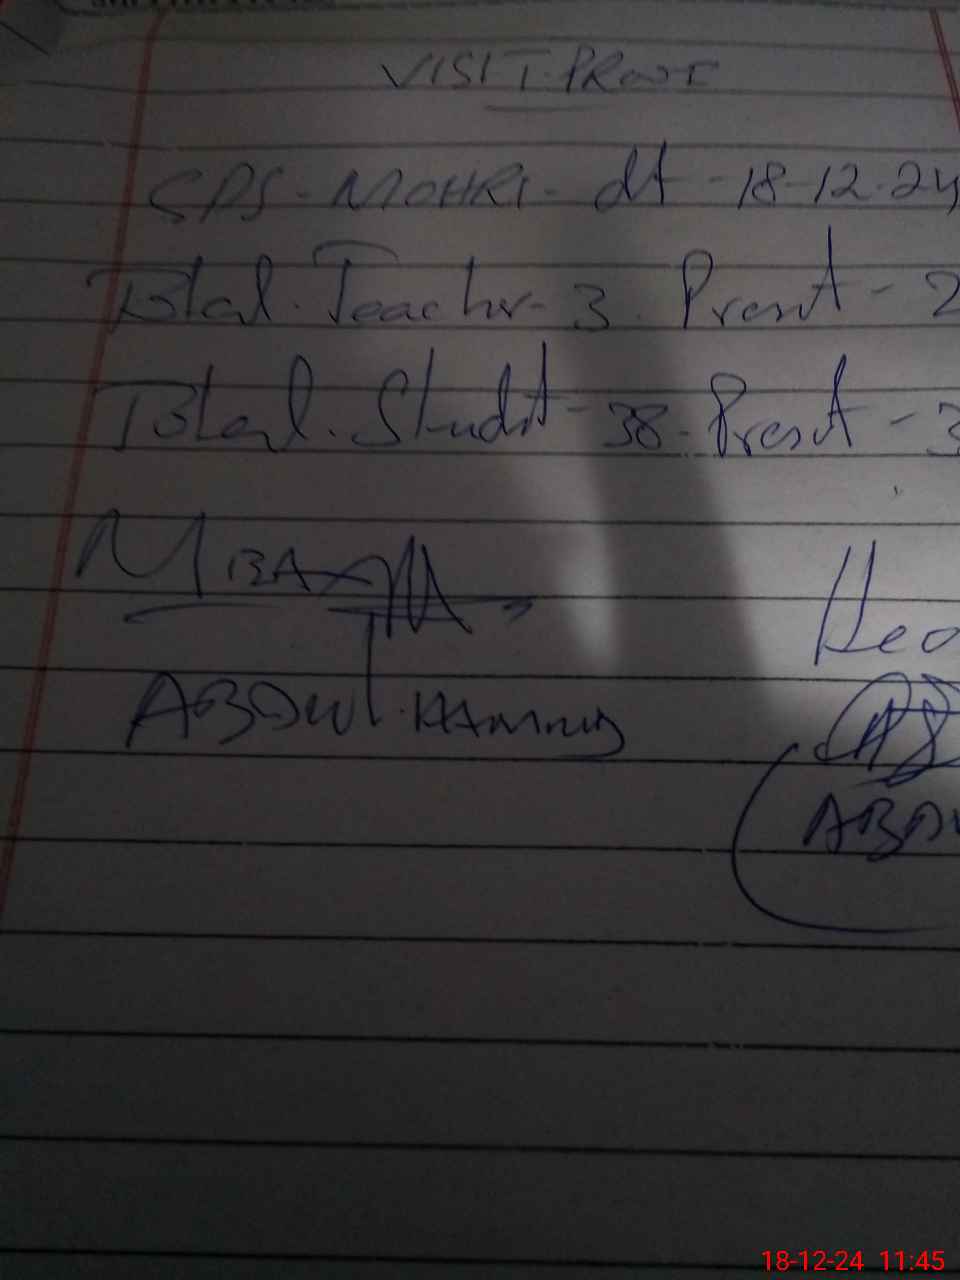 VISIT PROOF
GPS - MOHRI - dt - 18-12-24
Total Teacher - 3. Present - 2
Total Student - 38. Present - 3
ABDUL
Hea
ABDU
18-12-24 11:45